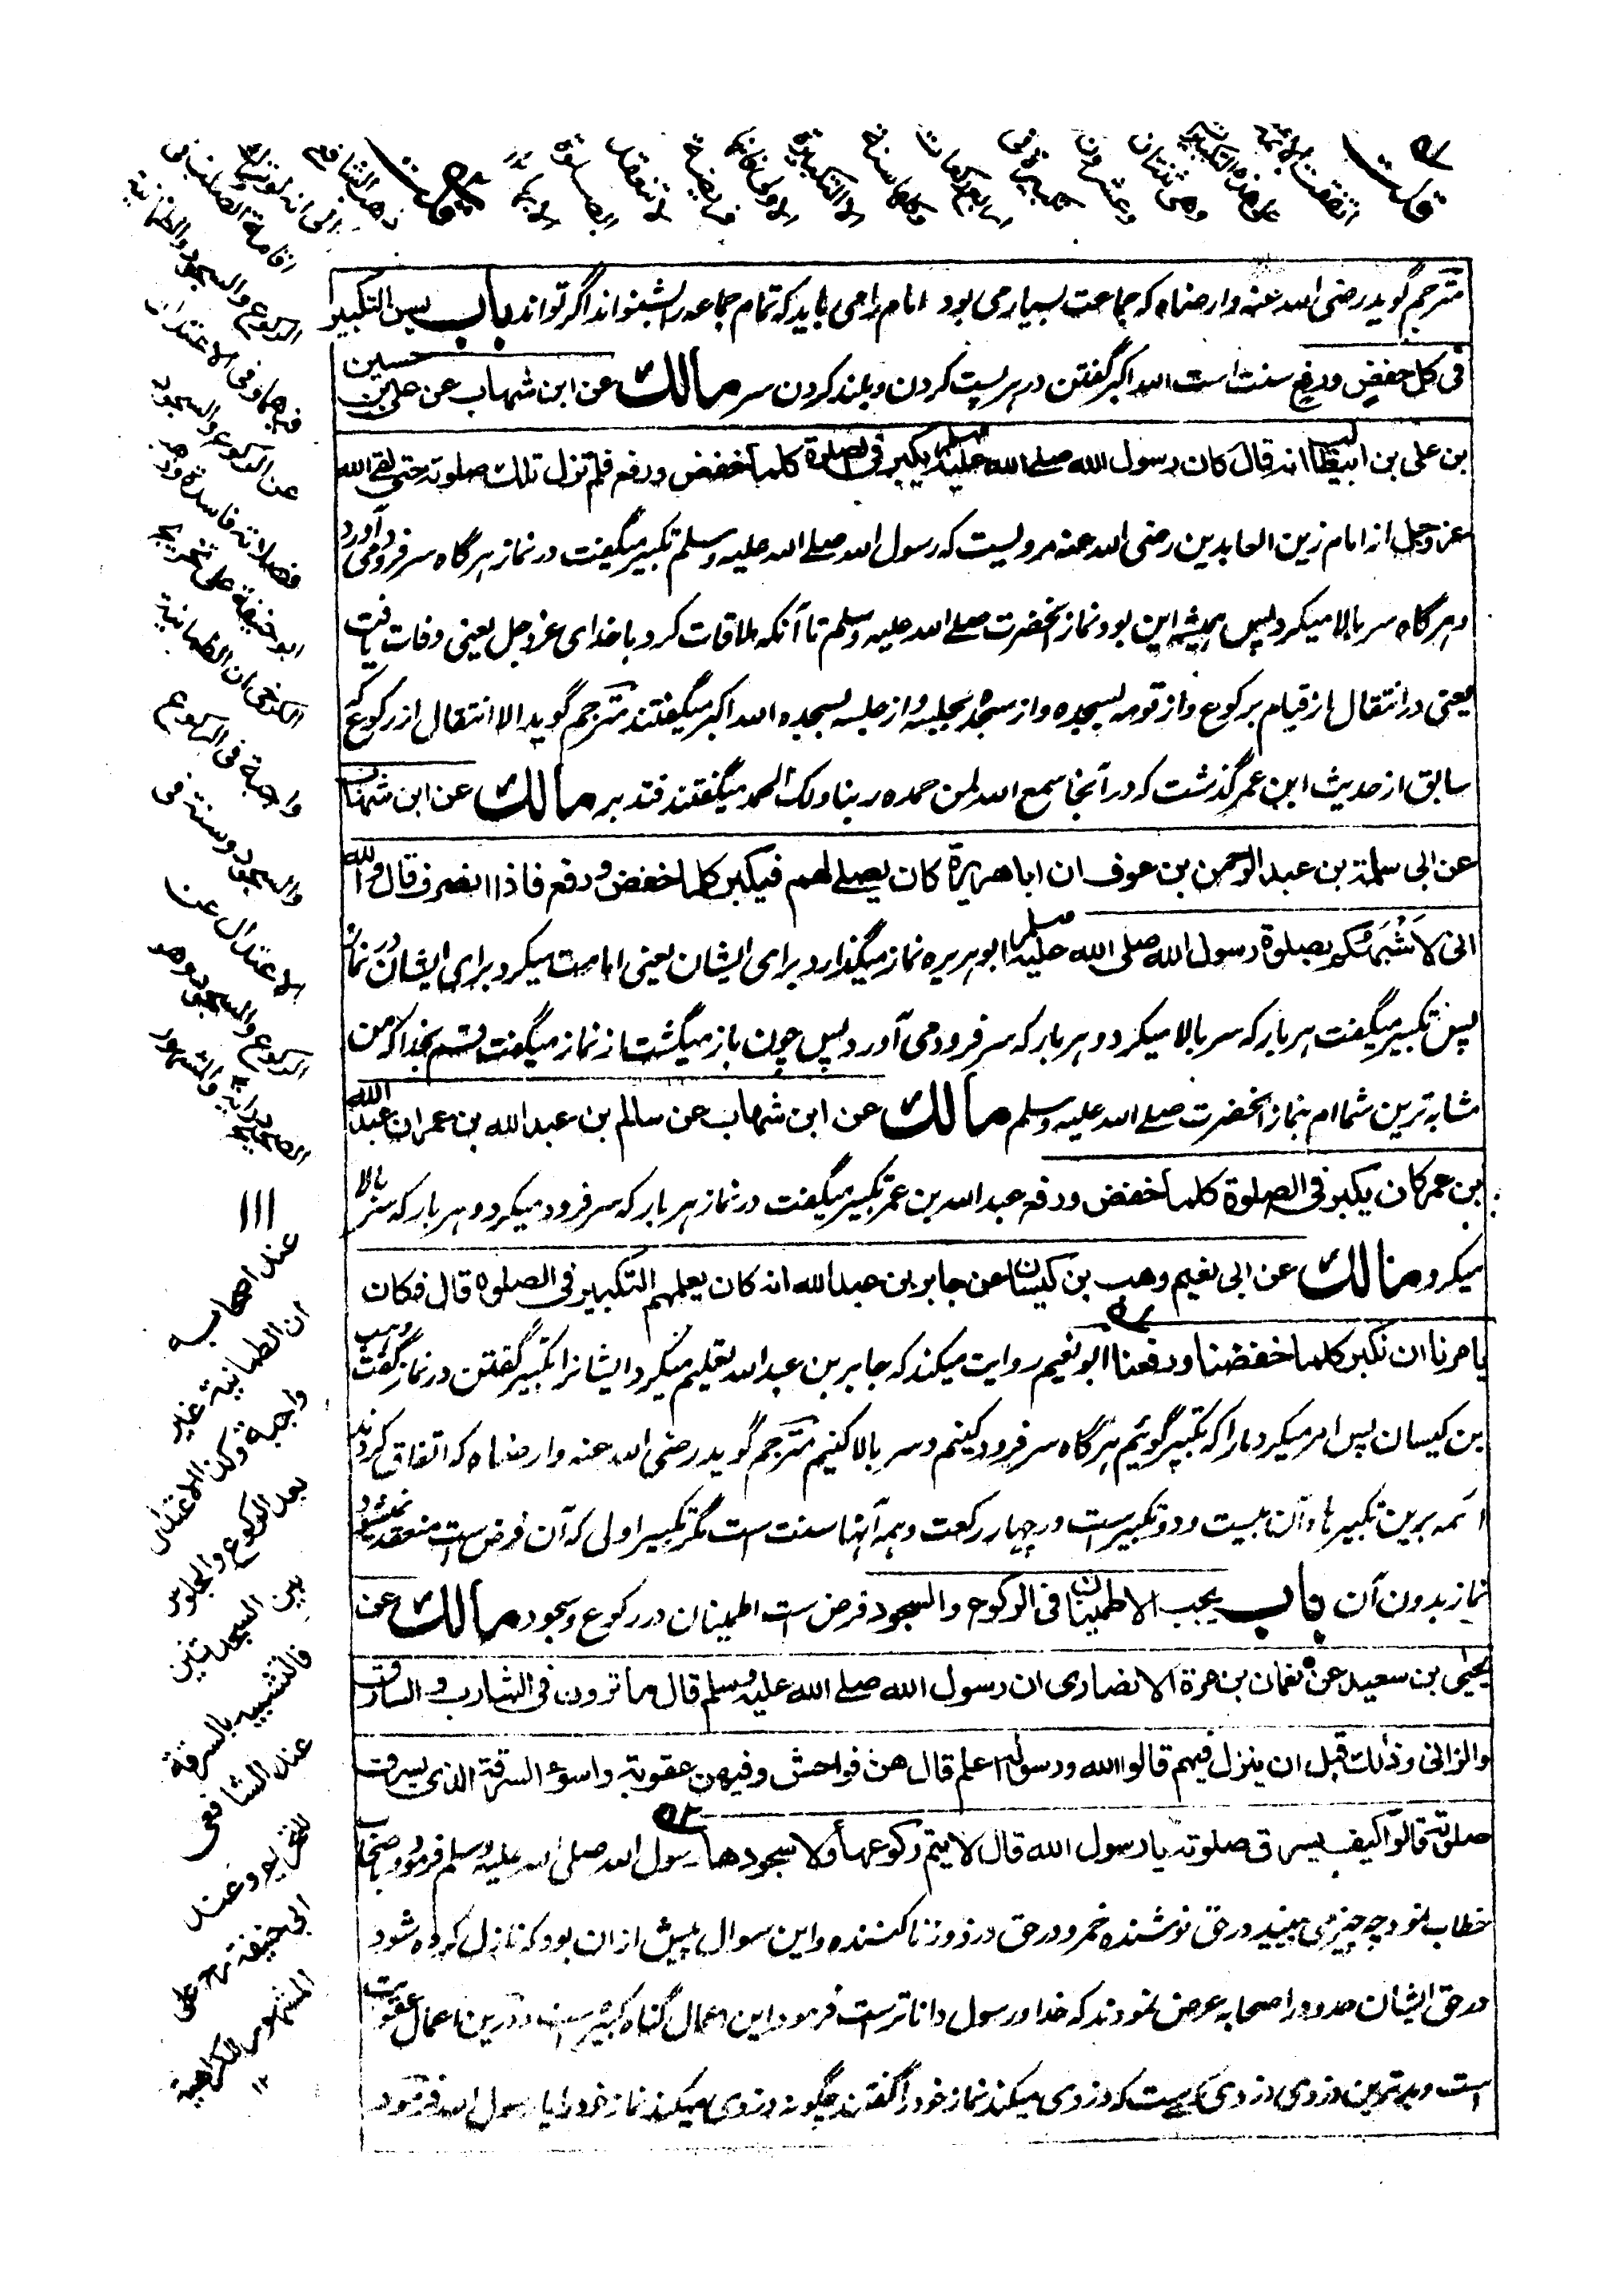 قلت اتفقت الائمة على هذه التكبيرات وهى ثنتان وعشرون تكبيرة فى اربع ركعات وكلها سنة الا التكبيرة الاولى فانها فريضة لا تنعقد الصلوة الا بها
قلت ذهب الشافعى الى انه
اقامة الصلب فى
الركوع والسجود والطمانينة
فيهما وفى الاعتدال
عن الركوع والسجود
فصلاته فاسدة وعند
ابو حنيفة على تخريج
الكرخى ان الطمانينة
واجبة فى الركوع
والسجود وسنة فى
الاعتدال عن
الركوع والسجود وهو
الصحيح والمشهور
عند اصحابه
ان الطمانينة غير
واجبة وكذا الاعتدال
بعد الركوع والجلوس
بين السجدتين
فالتشبيه بالسرقة
عند الشافعى
للتحريم وعند
ابى حنيفة رح على
المشهور للكراهية
١٢
مترجم گوید رضی الله عنه وارضاه که جماعت بسیار می بود امام را می باید که تمام جماعه را بشنواند اگر تواند باب یسن التکبیر
فی کل خفض ورفع سنت است الله اکبر گفتن در هر پست کردن و بلند کردن سر مالك عن ابن شهاب عن علی بن حسین
بن علی بن ابیطالب انه قال کان رسول الله صلے الله علیه وسلم یکبر فی الصلوة کلما خفض ورفع فلم تزل تلك صلوته حتی لقی الله
عز وجل از امام زین العابدین رضی الله عنه مرویست که رسول الله صلے الله علیه وسلم تکبیر میگفت در نماز هرگاه سر فرو می آورد
و هرگاه سر بالا میکرد پس همیشه این بود نماز آنحضرت صلے الله علیه وسلم تا آنکه ملاقات کرد با خدای عز وجل یعنی وفات یافت
یعنی در انتقال از قیام برکوع و از قومه بسجده و از سجده بجلسه و از جلسه بسجده الله اکبر میگفتند مترجم گوید الا انتقال از رکوع که
سابق از حدیث ابن عمر گذشت که در آنجا سمع الله لمن حمده ربنا ولك الحمد میگفتند فتدبر مالك عن ابن شهاب
عن ابی سلمة بن عبد الرحمن بن عوف ان ابا هریرة کان یصلے لهم فیکبر کلما خفض ورفع فاذا انصرف قال والله
انی لاشبهکم بصلوة رسول الله صلی الله علیه وسلم ابو هریره نماز میگذارد برای ایشان یعنی امامت میکرد برای ایشان در نماز
پس تکبیر میگفت هر بار که سر بالا میکرد و هر بار که سر فرود می آورد پس چون باز میگشت از نماز میگفت قسم بخدا که من
مشابه ترین شما ام بنماز آنحضرت صلے الله علیه وسلم مالك عن ابن شهاب عن سالم بن عبد الله بن عمر ان عبد الله
بن عمر کان یکبر فی الصلوة کلما خفض ورفع عبد الله بن عمر تکبیر میگفت در نماز هر بار که سر فرود میکرد و هر بار که سر بالا
میکرد مالك عن ابی نعیم وهب بن کیسان عن جابر بن عبد الله انه کان یعلمهم التکبیر فی الصلوة قال فکان
یامرنا ان نکبر کلما خفضنا ورفعنا ابو نعیم روایت میکند که جابر بن عبد الله تعلیم میکرد ایشانرا تکبیر گفتن در نماز گفت وهب
بن کیسان پس امر میکرد ما را که تکبیر گوئیم هرگاه سر فرود کنیم و سر بالا کنیم مترجم گوید رضی الله عنه وارضاه که اتفاق کردند
ائمه برین تکبیرها و آن بیست و دو تکبیرست در چهار رکعت و همه آنها سنت است مگر تکبیر اولی که آن فرض ست منعقد نمیشود
نماز بدون آن باب یجب الاطمینان فی الرکوع والسجود فرض ست اطمینان در رکوع و سجود مالك عن
یحیی بن سعید عن نعمان بن مرة الانصاری ان رسول الله صلے الله علیه وسلم قال ما ترون فی الشارب والسارق
والزانی وذلك قبل ان ینزل فیهم قالوا الله ورسوله اعلم قال هن فواحش وفیهن عقوبة واسوء السرقة الذی یسرق
صلوته قالوا کیف یسرق صلوته یا رسول الله قال لا یتم رکوعها ولا سجودها رسول الله صلی الله علیه وسلم فرمود باصحاب
خطاب نمود چه چیز می بینید در حق نوشنده خمر و در حق دزد و زنا کننده و این سوال پیش از ان بود که نازل کرده شود
در حق ایشان حدود را صحابه عرض نمودند که خدا و رسول داناتر است فرمود این اعمال گناه کبیره است و درین اعمال عقوبت
است و بدترین دزدی دزدی کسے ست که دزدی میکند نماز خود را گفتند چگونه دزدی میکند نماز خود را یا رسول الله فرمود